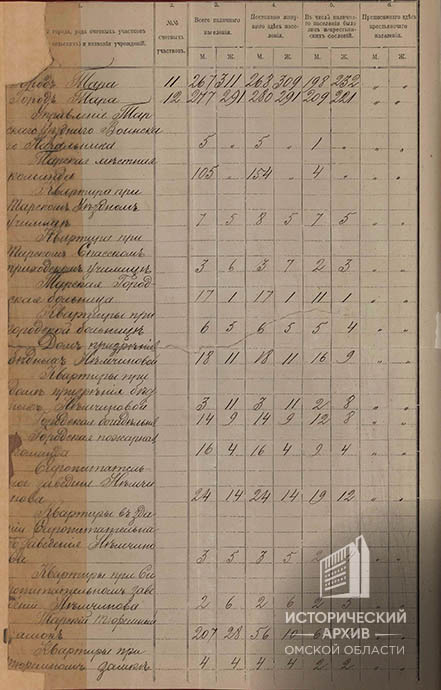 города, рода счетных участков
и названия учреждений.
№№
счетных
участков.
Всего наличнаго
населения.
Постоянно живу-
щаго здесь населения.
Въ числѣ налично-
го населения было
лицъ не крестьян-
скихъ сословий.
Приписного здѣсь
крестьянскаго
населения.
2. 3. 4. 5. 6.
М. Ж. М. Ж. М. Ж. М. Ж.
Городъ Тара 11 267 311 263 309 198 232 „ „
Городъ Тара 12 277 291 280 291 209 221 „ „
Управление Тар
скаго уѣзднаго Воинска
го Начальника 5 „ 5 „ 1 „ „ „
Тарская мѣстная
команда 105 „ 154 „ 4 „ „ „
Квартира при
Тарскомъ Уѣздномъ
училищѣ 7 5 8 5 7 5 „ „
Квартира при
Тарскомъ Спасскомъ
приходскомъ училищѣ 3 6 3 7 2 3 „ „
Тарская Город-
ская больница 17 1 17 1 11 1 „ „
Квартиры при
городской больницѣ 6 5 6 5 5 4 „ „
Домъ призрѣния
бѣдныхъ Нѣмчиновой 18 11 18 11 16 9 „ „
Квартиры при
домѣ призрѣния бѣд
ныхъ Нѣмчиновой 3 11 3 11 2 8 „ „
Городская богадѣльня 14 9 14 9 12 8 „ „
Городская пожарная
команда 16 4 16 4 9 4 „ „
Сиропитатель-
ное заведение Нѣмчи
нова 24 14 24 14 19 12 „ „
Квартиры въ зда
нии Сиропитательна
го заведения Нѣмчино
ва 3 5 3 5
Квартиры при Си
ропитательномъ заве
дении Нѣмчинова 2 6 2 6 2
Тарский тюремный
замокъ 207 28 56
Квартиры при
тюремномъ замкѣ 4 4 4 4 2 2 „ „
ИСТОРИЧЕСКИЙ
АРХИВ
ОМСКОЙ ОБЛАСТИ